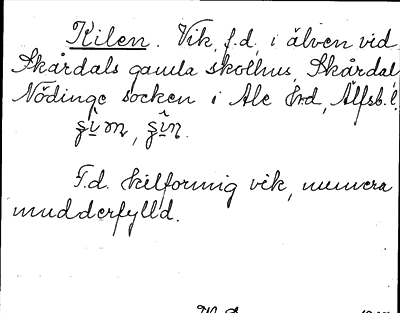 Kilen. Vik, f.d., i älven vid
Skårdals gamla skolhus, Skårdal,
Nödinge socken i Ale hrd, Älfsb. l.
F.d. kilformig vik, numera
mudderfylld.